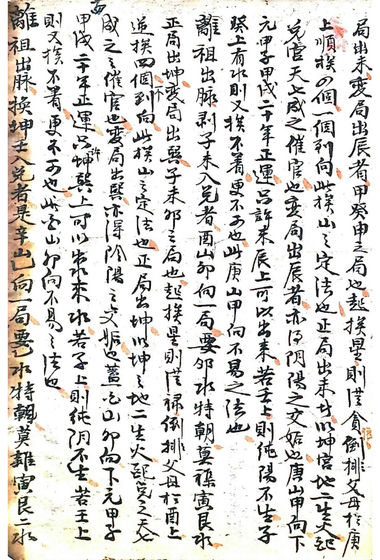 局出未変局出辰者甲癸申之局也起挨星則從貪倒排父母於庚
上順挨の個一個到向此挨山之定法也正局出未者以坤宮地二生火起
兌宮天七成之催官也変局出辰者亦得阴陽之交姤也庚山甲向下
元甲子甲戌二十年正運只許未辰上可以出来若壬上則純陽不生子
癸上有水則又挨不着更不可也此庚山甲向不易之法也
離祖出脉剥子未入兌者酉山卯向一局要卯水特朝莫襍寅艮水
正局出坤変局出巽子未卯之局也起挨星則從禄倒排父母於酉上
逆挨四個到向此挨山之定法也正局出坤以坤之地二生火起兌之天七
成之之催官也変局出巽亦得阴陽之交姤也蓋酉山卯向下元甲子
甲戌二十年正運只許坤巽上可以出水来水若子上則純阴不生若壬上
則又挨不着更不可也此酉山卯向不易之法也
離祖出脉挨坤壬入兌者是辛山乙向一局要乙水特朝莫雜寅艮二水